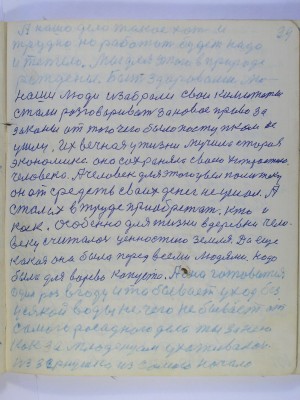 А наше дело такое как и
29
трудно но работать будет надо
и тяжело. Мы для этого в природе
рождены. Быть здоровыми.
наши люди избрали свои
стали разговаривать за новое право за
законы от того чего было поступком не
ушли. Их вечная у жизни лучшая сторона
экономике она сохраняла свою
человека. А человек для этого ушел
он от средств своих денег не ушел. А
стал их в труде приобретать, кто и
как. Особенно для жизни в деревни чело-
веку считалось ценностью земля. За еще
какая она была перед всеми людями. Надо
было для варево капусто. А она готовится
один раз в году и то бывает уход без
всякой воды не чего не бывает она
самого рассадного дела ты за нею
как за младенцом ухаживай.
из зернушко из самого начало